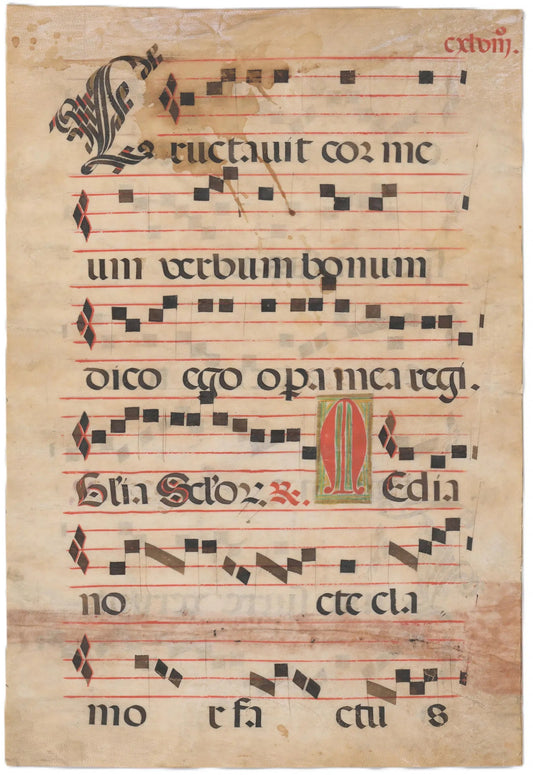 cxlviij.
Eructauit cor me
um verbum bonum
dico ego opa mea regi.
Glia Sclor: ℟. Media
no cte cla
mo r fa ctu s